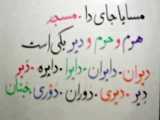 مسایا جای دا . مسجد
هرم و حرم و دیر یکی است
دیوان . دایوان . دایوا . دایره . دیر
دیر . دیوی . دوران . دوری . جنان